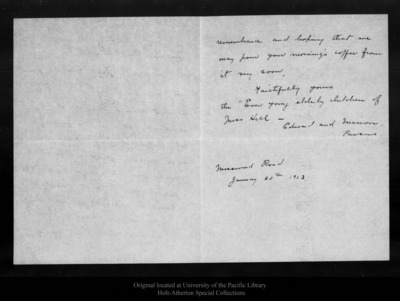 remembrance and hoping that we
may pour your morning's coffee from
it very soon,
Faithfully yours
the "Ever young elderly children of
Miss Hill —
Edward and Marion
Road
January 1913
Original located at University of the Pacific Library
Holt-Atherton Special Collections